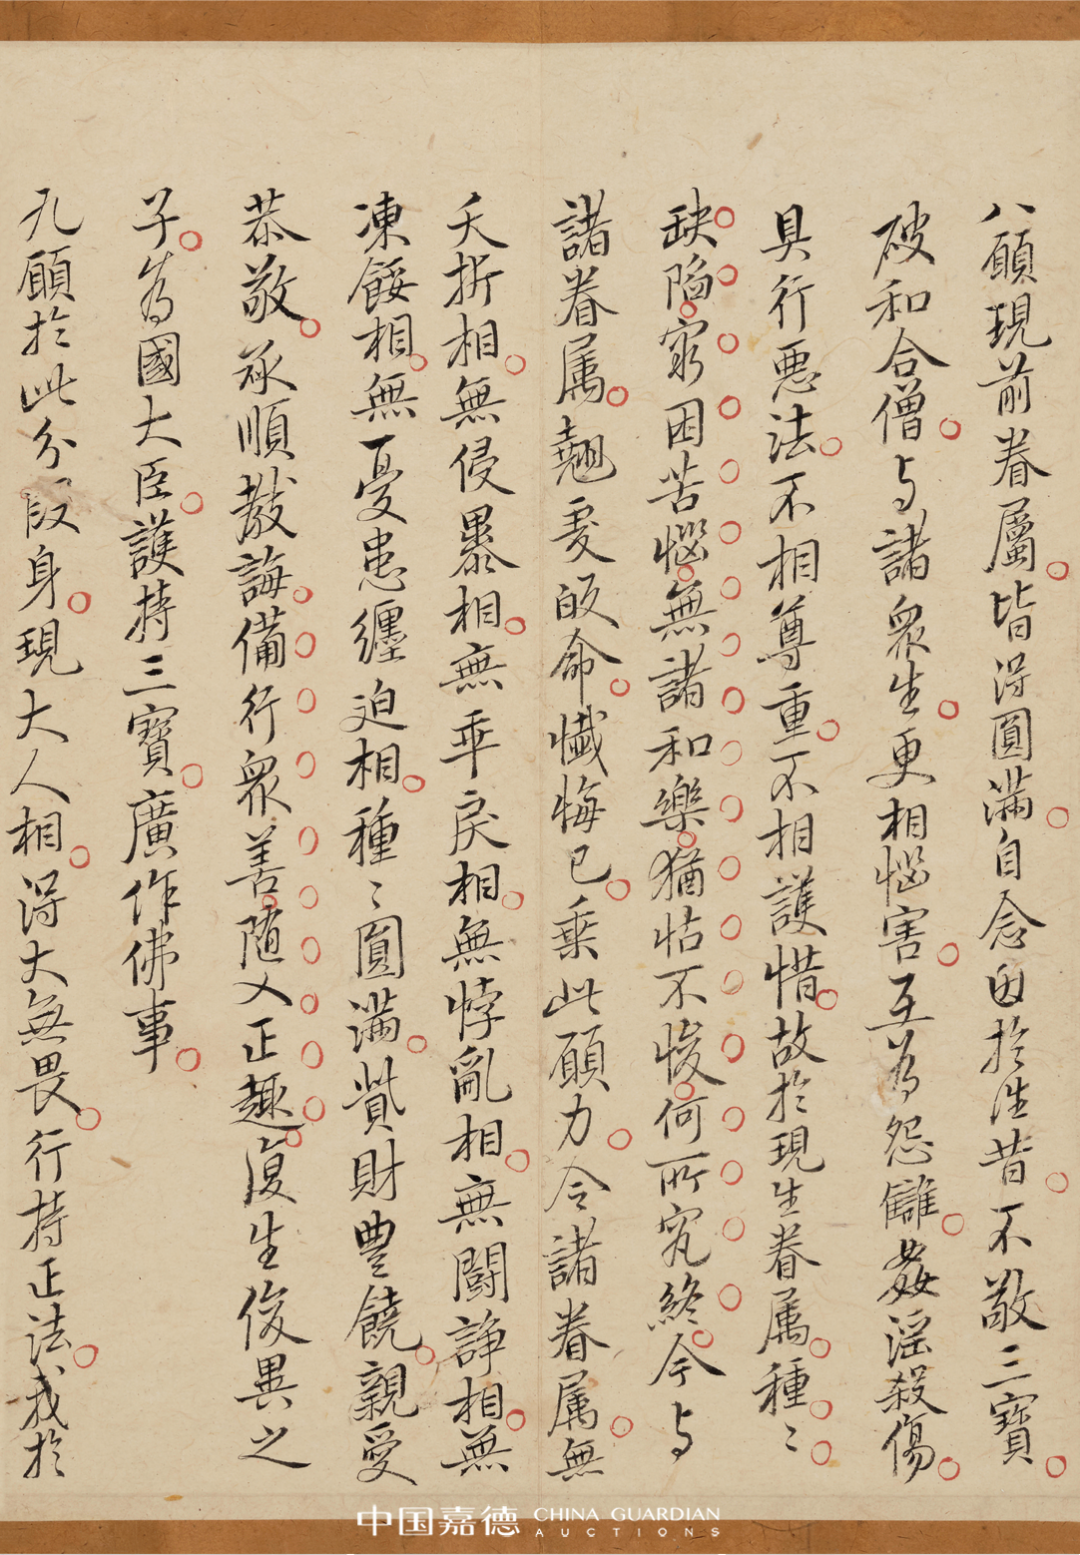 八願現前眷屬皆得圓滿自念因於往昔不敬三寶
破和合僧与諸衆生更相惱害互為怨讎姦滛殺傷
具行惡法不相尊重不相護惜故於現生眷属種〻
缺陷窮困苦惱無諸和樂猶怙不悛何所究終今与
諸眷属翹虔皈命懺悔已乗此願力令諸眷属無
夭折相無侵暴相無乖戾相無悖亂相無鬭諍相無
凍餒相無憂患纏迫相種〻圓滿貲財豐饒親愛
恭敬承順教誨備行衆善随入正趣復生俊異之
子為國大臣護持三寶廣作佛事
九願於此分段身現大人相得大無畏行持正法我於
中国嘉德 CHINA GUARDIAN AUCTIONS